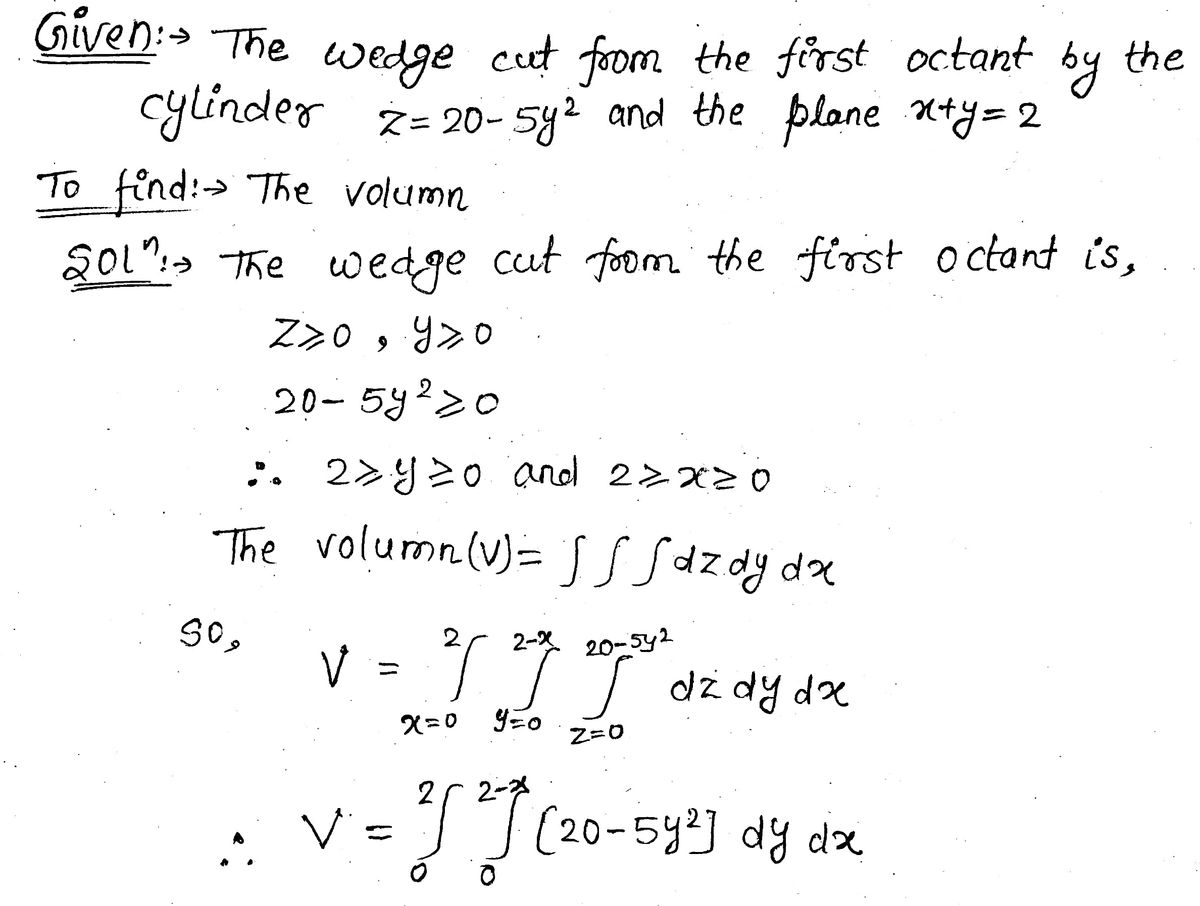 Given:→ The wedge cut from the first octant by the
cylinder z = 20 - 5y² and the plane x+y = 2
To find:→ The volumn
Solⁿ:→ The wedge cut from the first octant is,
Z ⩾ 0 , y ⩾ 0
20 - 5y² ⩾ 0
∴ 2 ⩾ y ⩾ 0 and 2 ⩾ x ⩾ 0
The volumn (V) = ∫ ∫ ∫ dz dy dx
So, V = ∫_{x=0}^{2} ∫_{y=0}^{2-x} ∫_{z=0}^{20-5y²} dz dy dx
∴ V = ∫_{0}^{2} ∫_{0}^{2-x} [20 - 5y²] dy dx